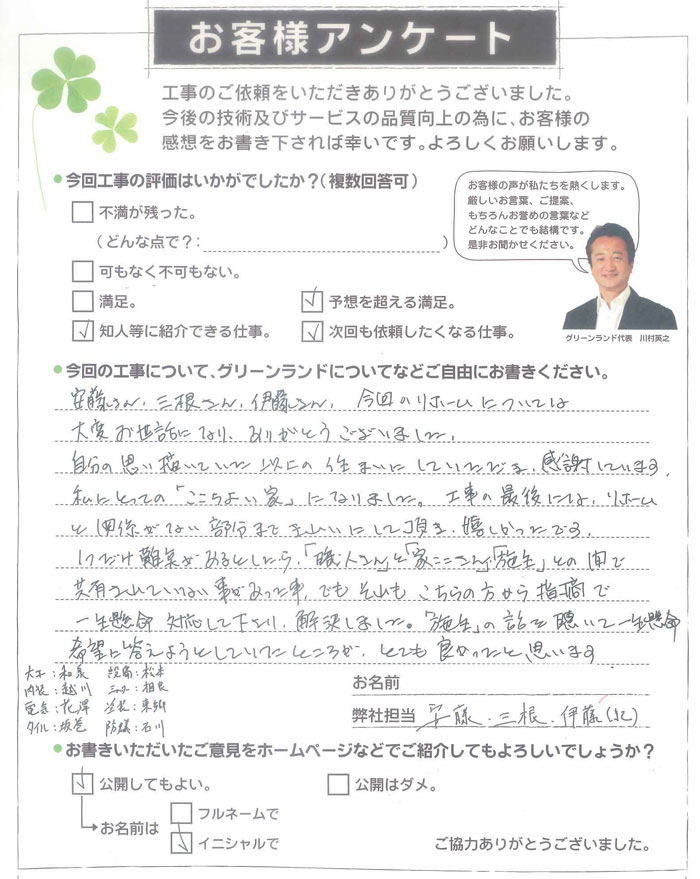 お客様アンケート
工事のご依頼をいただきありがとうございました。
今後の技術及びサービスの品質向上の為に、お客様の
感想をお書き下されば幸いです。よろしくお願いします。
●今回工事の評価はいかがでしたか？(複数回答可)
不満が残った。
(どんな点で？： )
可もなく不可もない。
満足。
予想を超える満足。
知人等に紹介できる仕事。
次回も依頼したくなる仕事。
お客様の声が私たちを熱くします。
厳しいお言葉、ご提案、
もちろんお誉めの言葉など
どんなことでも結構です。
是非お聞かせください。
グリーンランド代表 川村英之
●今回の工事について、グリーンランドについてなどご自由にお書きください。
安藤さん、三根さん、伊藤さん、今回のリホームについては
大変お世話になり、ありがとうございました。
自分の思い描いていた以上の住まいにしていただき、感謝しています。
私にとっての「ここちよい家」になりました。工事の最後には、リホーム
と関係がない部分まできれいにして頂き、嬉しかったです。
1つだけ難点があるとしたら、「職人さん」と「家ここさん」「施主」との間で
共有されていない事があった事、でもそれもこちらの方から指摘で
一生懸命対応して下さり、解決しました。「施主」の話を聴いて一生懸命
希望に答えようとしていたところが、とても良かったと思います
大工：和泉 設備：松本
内装：越川
電気：花澤
タイル：坂巻 防蟻：石川
お名前
弊社担当 安藤、三根、伊藤(JC)
●お書きいただいたご意見をホームページなどでご紹介してもよろしいでしょうか？
公開してもよい。
公開はダメ。
お名前は
フルネームで
イニシャルで
ご協力ありがとうございました。